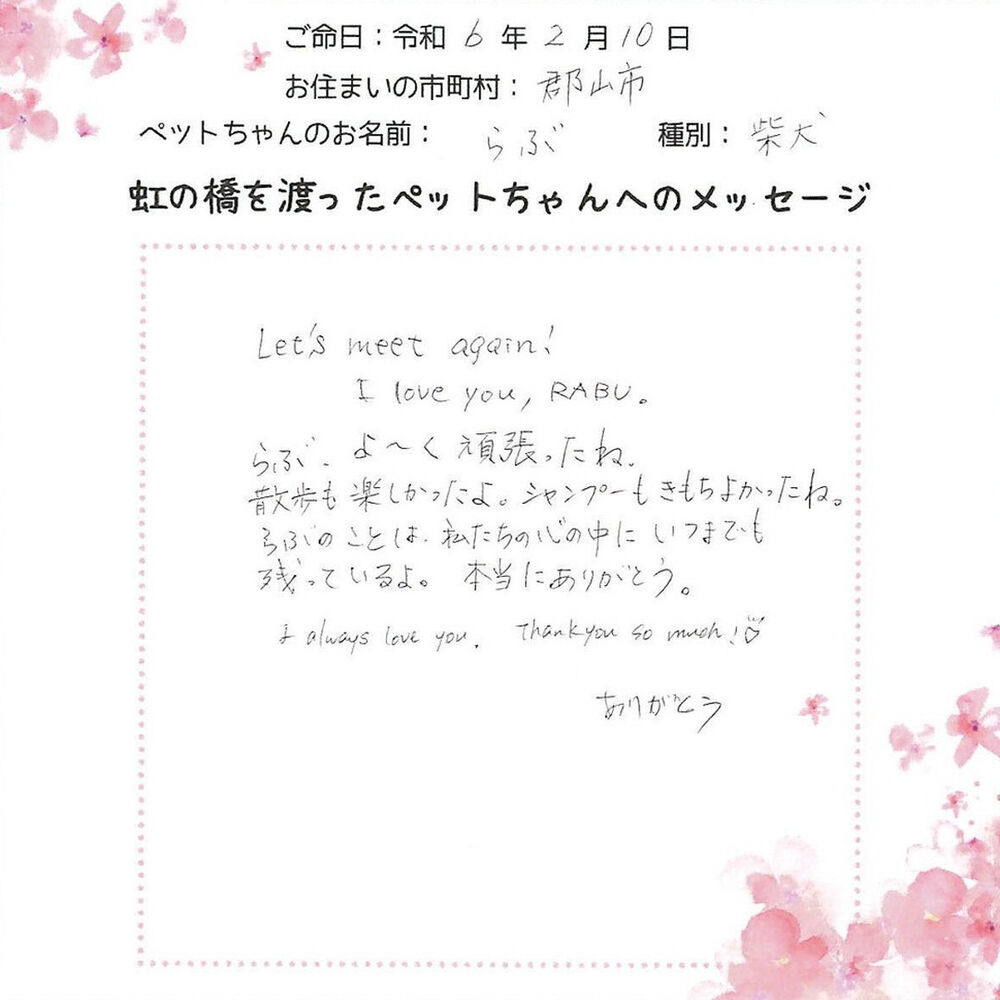 ご命日：令和 6 年 2 月 10 日
お住まいの市町村： 郡山市
ペットちゃんのお名前： らぶ 種別： 柴犬
虹の橋を渡ったペットちゃんへのメッセージ
Let's meet again!
I love you, RABU。
らぶ、よ〜く頑張ったね、
散歩も楽しかったよ。シャンプーもきもちよかったね。
らぶのことは、私たちの心の中にいつまでも
残っているよ。 本当にありがとう。
I always love you. Thankyou so much!♡
ありがとう